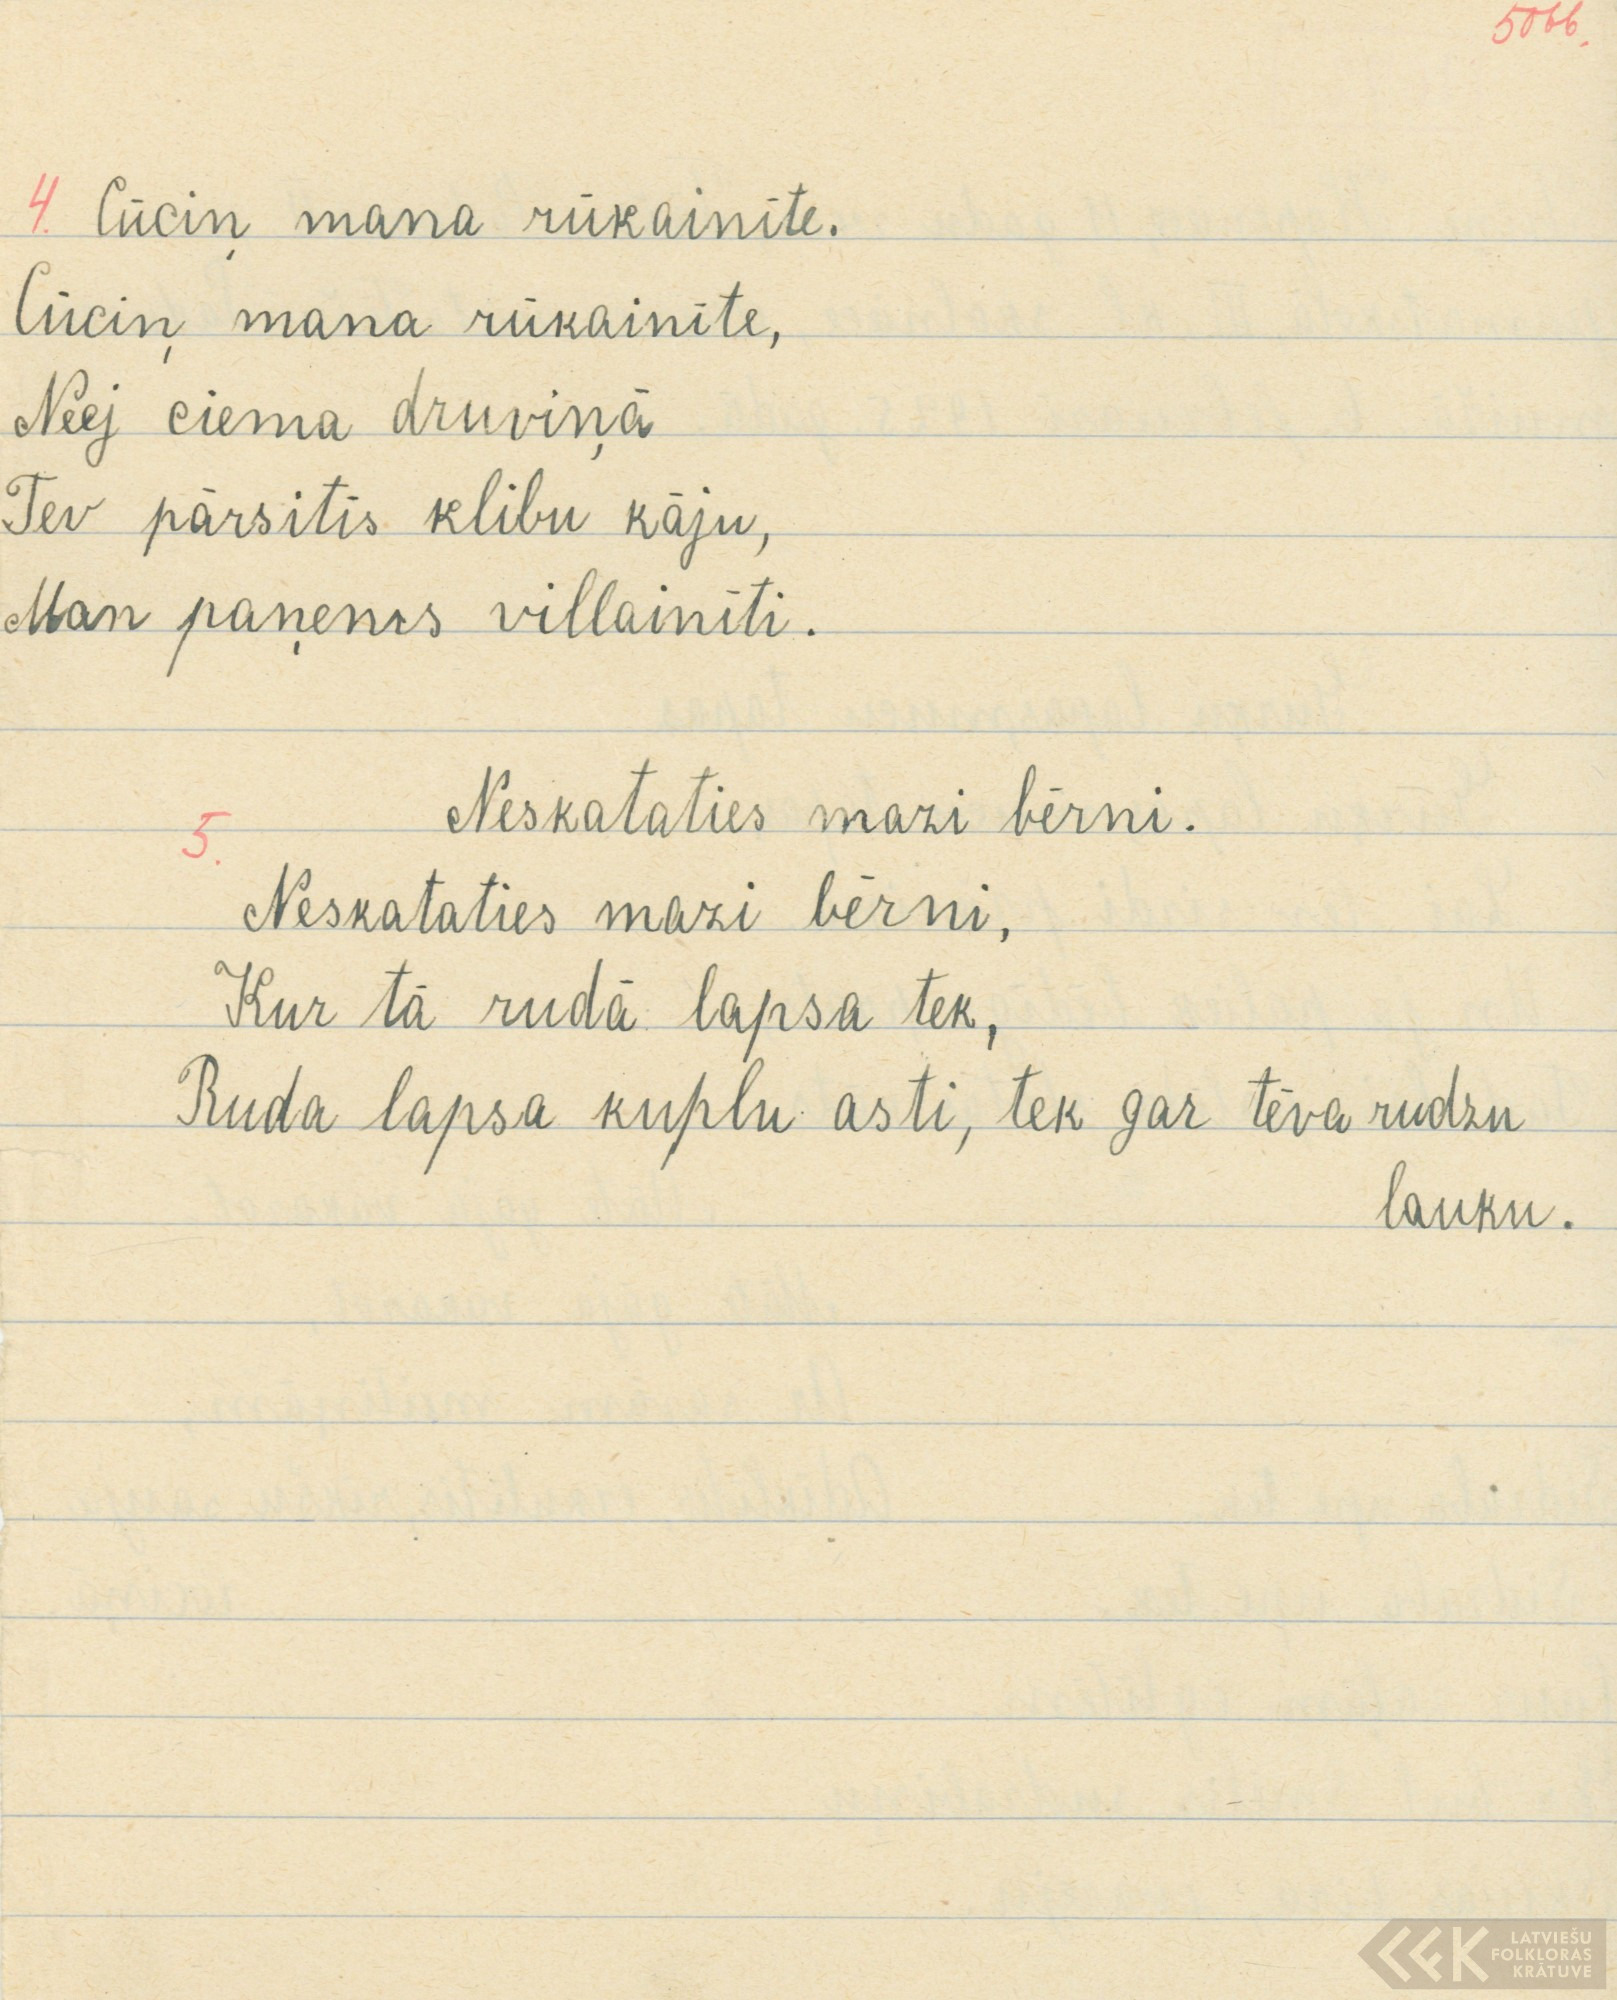 5066.
4. Cūciņ mana rūkainīte.
Cūciņ mana rūkainīte,
Neej ciema druviņā
Tev pārsitīs klibu kāju,
Man paņems villainīti.
Neskataties mazi bērni.
5.
Neskataties mazi bērni,
Kur tā rudā lapsa tek,
Ruda lapsa kuplu asti, tek gar tēva rudzu
lauku.
LATVIEŠU
FOLKLORAS
KRĀTUVE